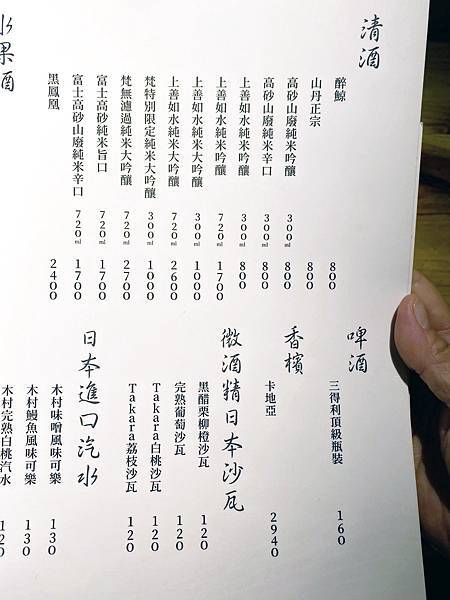 清酒
醉鯨 800
山丹正宗 800
高砂山廢純米吟釀 300ml 800
高砂山廢純米辛口 300ml 800
上善如水純米吟釀 300ml 800
上善如水純米吟釀 720ml 1700
上善如水純米大吟釀 300ml 1000
上善如水純米大吟釀 720ml 2600
梵特別限定純米大吟釀 300ml 1000
梵無濾過純米大吟釀 720ml 2700
富士高砂純米旨口 720ml 1700
富士高砂山廢純米辛口 720ml 1700
黑鳳凰 2400
水果酒
啤酒
三得利頂級瓶裝 160
香檳
卡地亞 2940
微酒精日本沙瓦
黑醋栗柳橙沙瓦 120
完熟葡萄沙瓦 120
Takara白桃沙瓦 120
Takara荔枝沙瓦 120
日本進口汽水
木村味噌風味可樂 130
木村鰻魚風味可樂 130
木村完熟白桃汽水 120